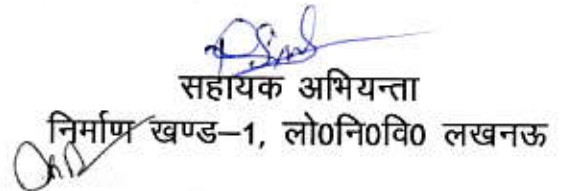 सहायक अभियन्ता
निर्माण खण्ड–1, लो0नि0वि0 लखनऊ